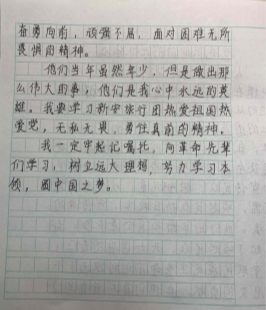 奋勇向前，顽强不屈，面对困难无所
畏惧的精神。
他们当年虽然年少，但是做出那
么伟大的事，他们是我心中永远的英
雄。我要学习新安旅行团热爱祖国热
爱党，无私无畏，勇往直前的精神。
我一定牢记记嘱托，向革命先辈
们学习，树立远大理想，努力学习本
领，圆中国之梦。